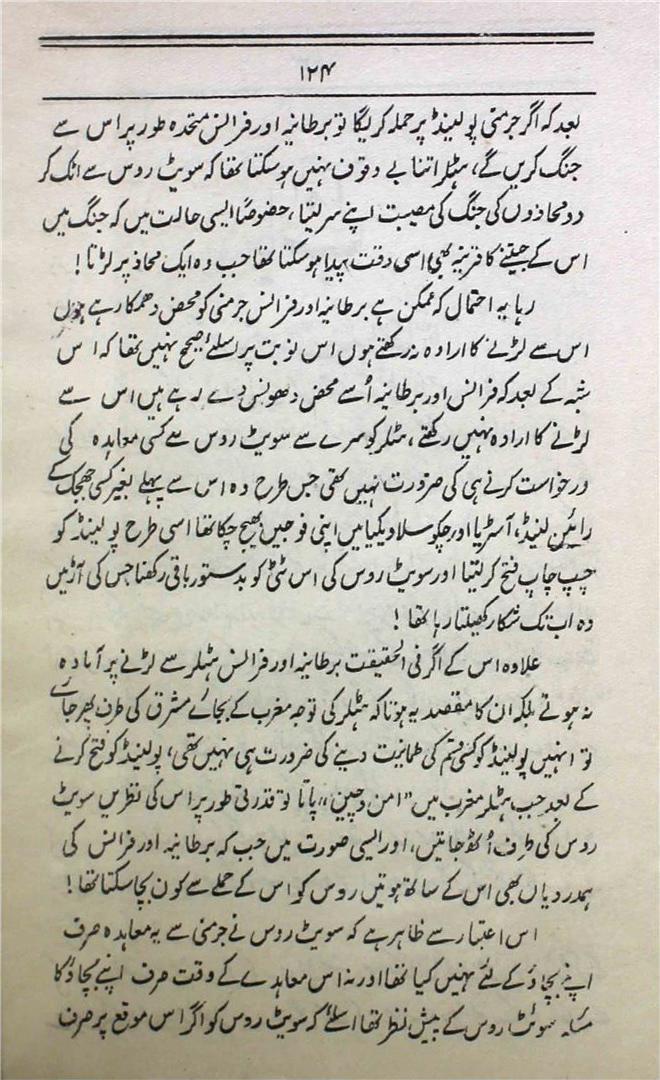 ۱۲۴
بعد کہ اگر جرمنی پولینڈ پر حملہ کریگا تو برطانیہ اور فرانس متحدہ طور پر اس سے
جنگ کریں گے، ہٹلر اتنا بے وقوف نہیں ہو سکتا تھا کہ سویٹ روس سے اٹک کر
دو محاذوں کی جنگ کی مصیبت اپنے سر لیتا، خصوصاً ایسی حالت میں کہ جنگ میں
اس کے جیتنے کا قرینہ بھی اسی وقت پیدا ہو سکتا تھا جب وہ ایک محاذ پر لڑتا!
رہا یہ احتمال کہ ممکن ہے برطانیہ اور فرانس جرمنی کو محض دھمکا رہے ہوں
اس سے لڑنے کا ارادہ نہ رکھتے ہوں اس نوبت پر اسلئے صحیح نہیں تھا کہ اس
شبہ کے بعد کہ فرانس اور برطانیہ اُسے محض دھونس دے رہے ہیں اس سے
لڑنے کا ارادہ نہیں رکھتے، ہٹلر کو سرے سے سویٹ روس سے کسی معاہدہ کی
درخواست کرنے ہی کی ضرورت نہیں تھی جس طرح وہ اس سے پہلے بغیر کسی جھجک کے
رائین لینڈ، آسٹریا اور چکوسلاویکیا میں اپنی فوجیں بھیج چکا تھا اسی طرح پولینڈ کو
چپ چاپ فتح کر لیتا اور سویٹ روس کی اس ٹٹی کو بدستور باقی رکھتا جس کی آڑ میں
وہ اب تک شکار کھیلتا رہا تھا!
علاوہ اس کے اگر فی الحقیقت برطانیہ اور فرانس ہٹلر سے لڑنے پر آمادہ
نہ ہوتے بلکہ ان کا مقصد یہ ہوتا کہ ہٹلر کی توجہ مغرب کے بجائے مشرق کی طرف پھر جائے
تو انہیں پولینڈ کو کسی قسم کی طمانیت دینے کی ضرورت ہی نہیں تھی، پولینڈ کو فتح کرنے
کے بعد جب ہٹلر مغرب میں "امن و چین" پاتا تو قدرتی طور پر اس کی نظریں سویٹ
روس کی طرف اُٹھ جاتیں، اور ایسی صورت میں جب کہ برطانیہ اور فرانس کی
ہمدردیاں بھی اس کے ساتھ ہوتیں روس کو اس کے حملے سے کون بچا سکتا تھا!
اس اعتبار سے ظاہر ہے کہ سویٹ روس نے جرمنی سے یہ معاہدہ صرف
اپنے بچاؤ کے لئے نہیں کیا تھا اور نہ اس معاہدے کے وقت صرف اپنے بچاؤ کا
مسئلہ سوئٹ روس کے پیش نظر تھا اسلئے کہ سویٹ روس کو اگر اس موقع پر صرف